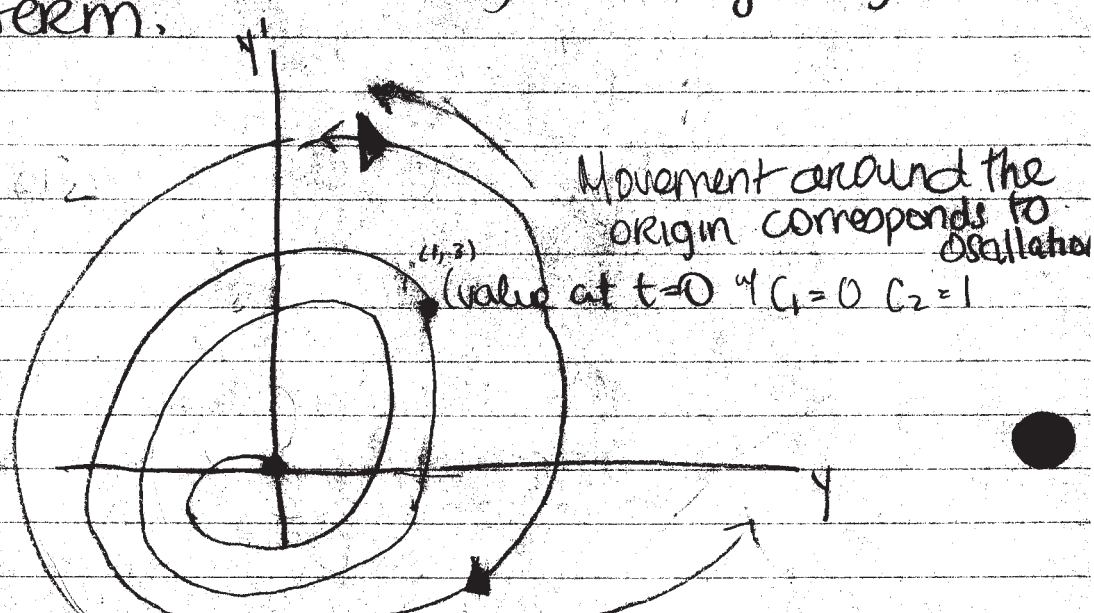 term.
y'
Movement around the
origin corresponds to
osallation
(1,3)
(value at t=0 w/ C₁ = 0 C₂ = 1
y